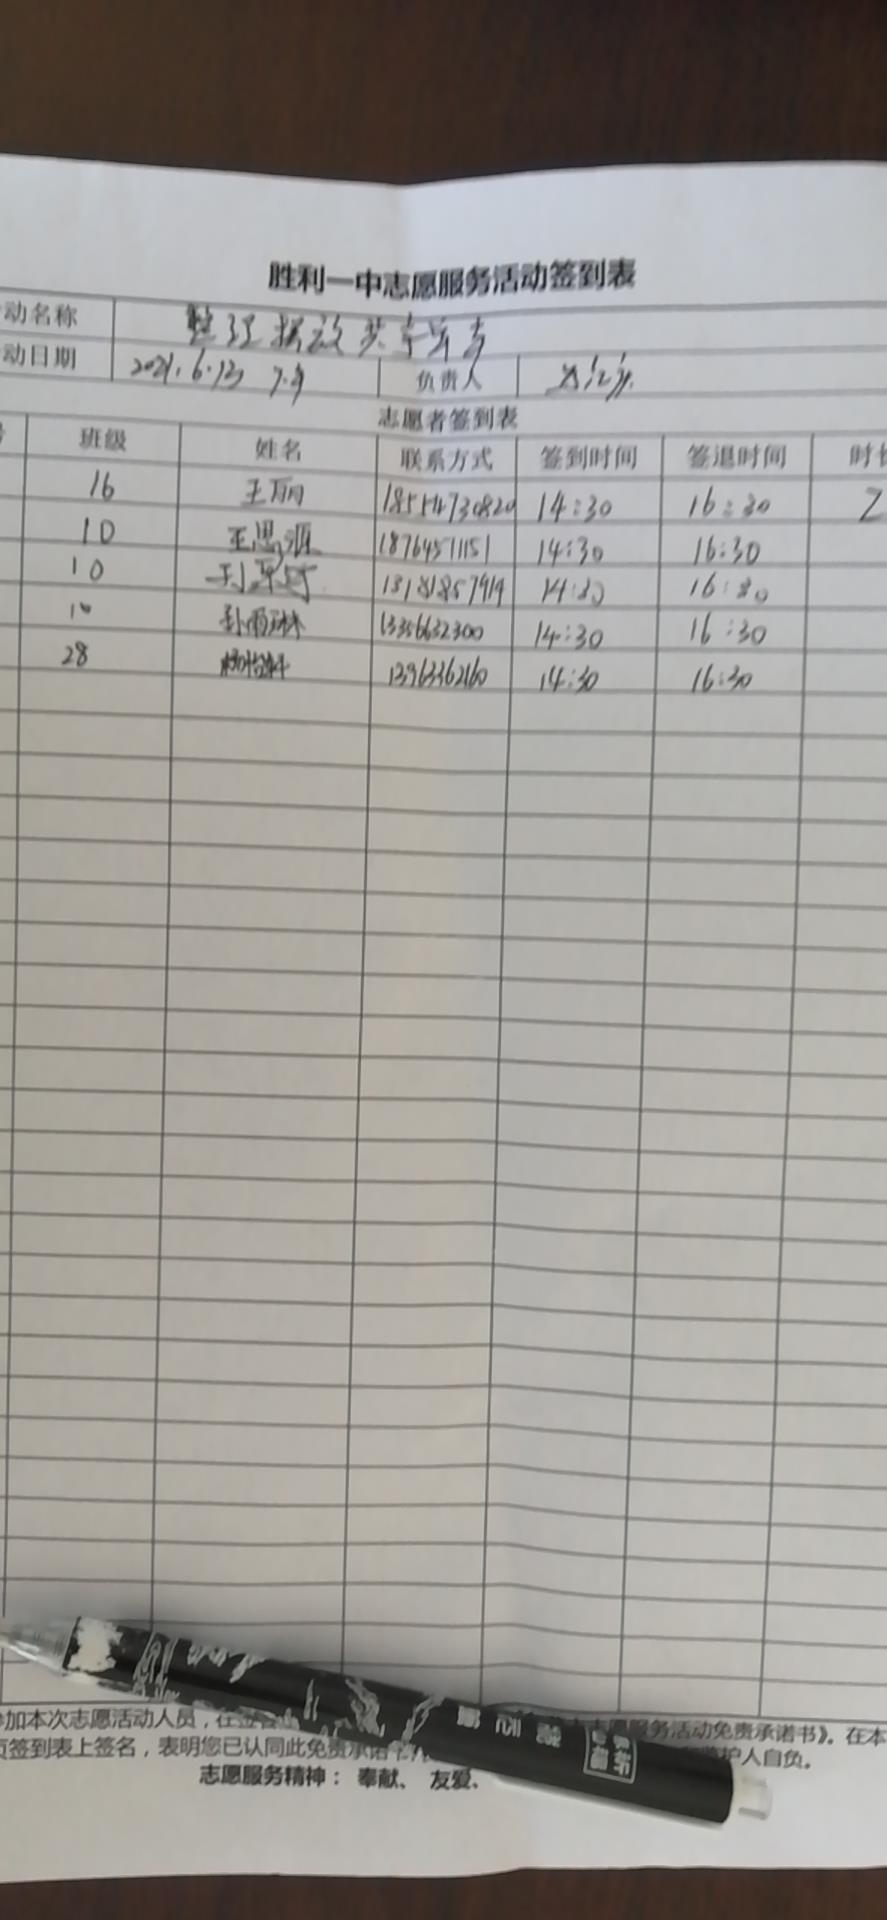 胜利一中志愿服务活动签到表
动名称 整理摆放共享单车
动日期 2021.6.13 负责人
志愿者签到表
班级 姓名 联系方式 签到时间 签退时间 时长
16 王丽 18554730820 14:30 16:30 2
10 王思源 18764571151 14:30 16:30
10 13181857919 14:30 16:30
10 孙雨琳 13356632300 14:30 16:30
28 杨怡轩 13963362160 14:30 16:30
参加本次志愿活动人员，在签 服务活动免责承诺书》。在本
页签到表上签名，表明您已认同此免责承诺 护人自负。
志愿服务精神： 奉献、 友爱、